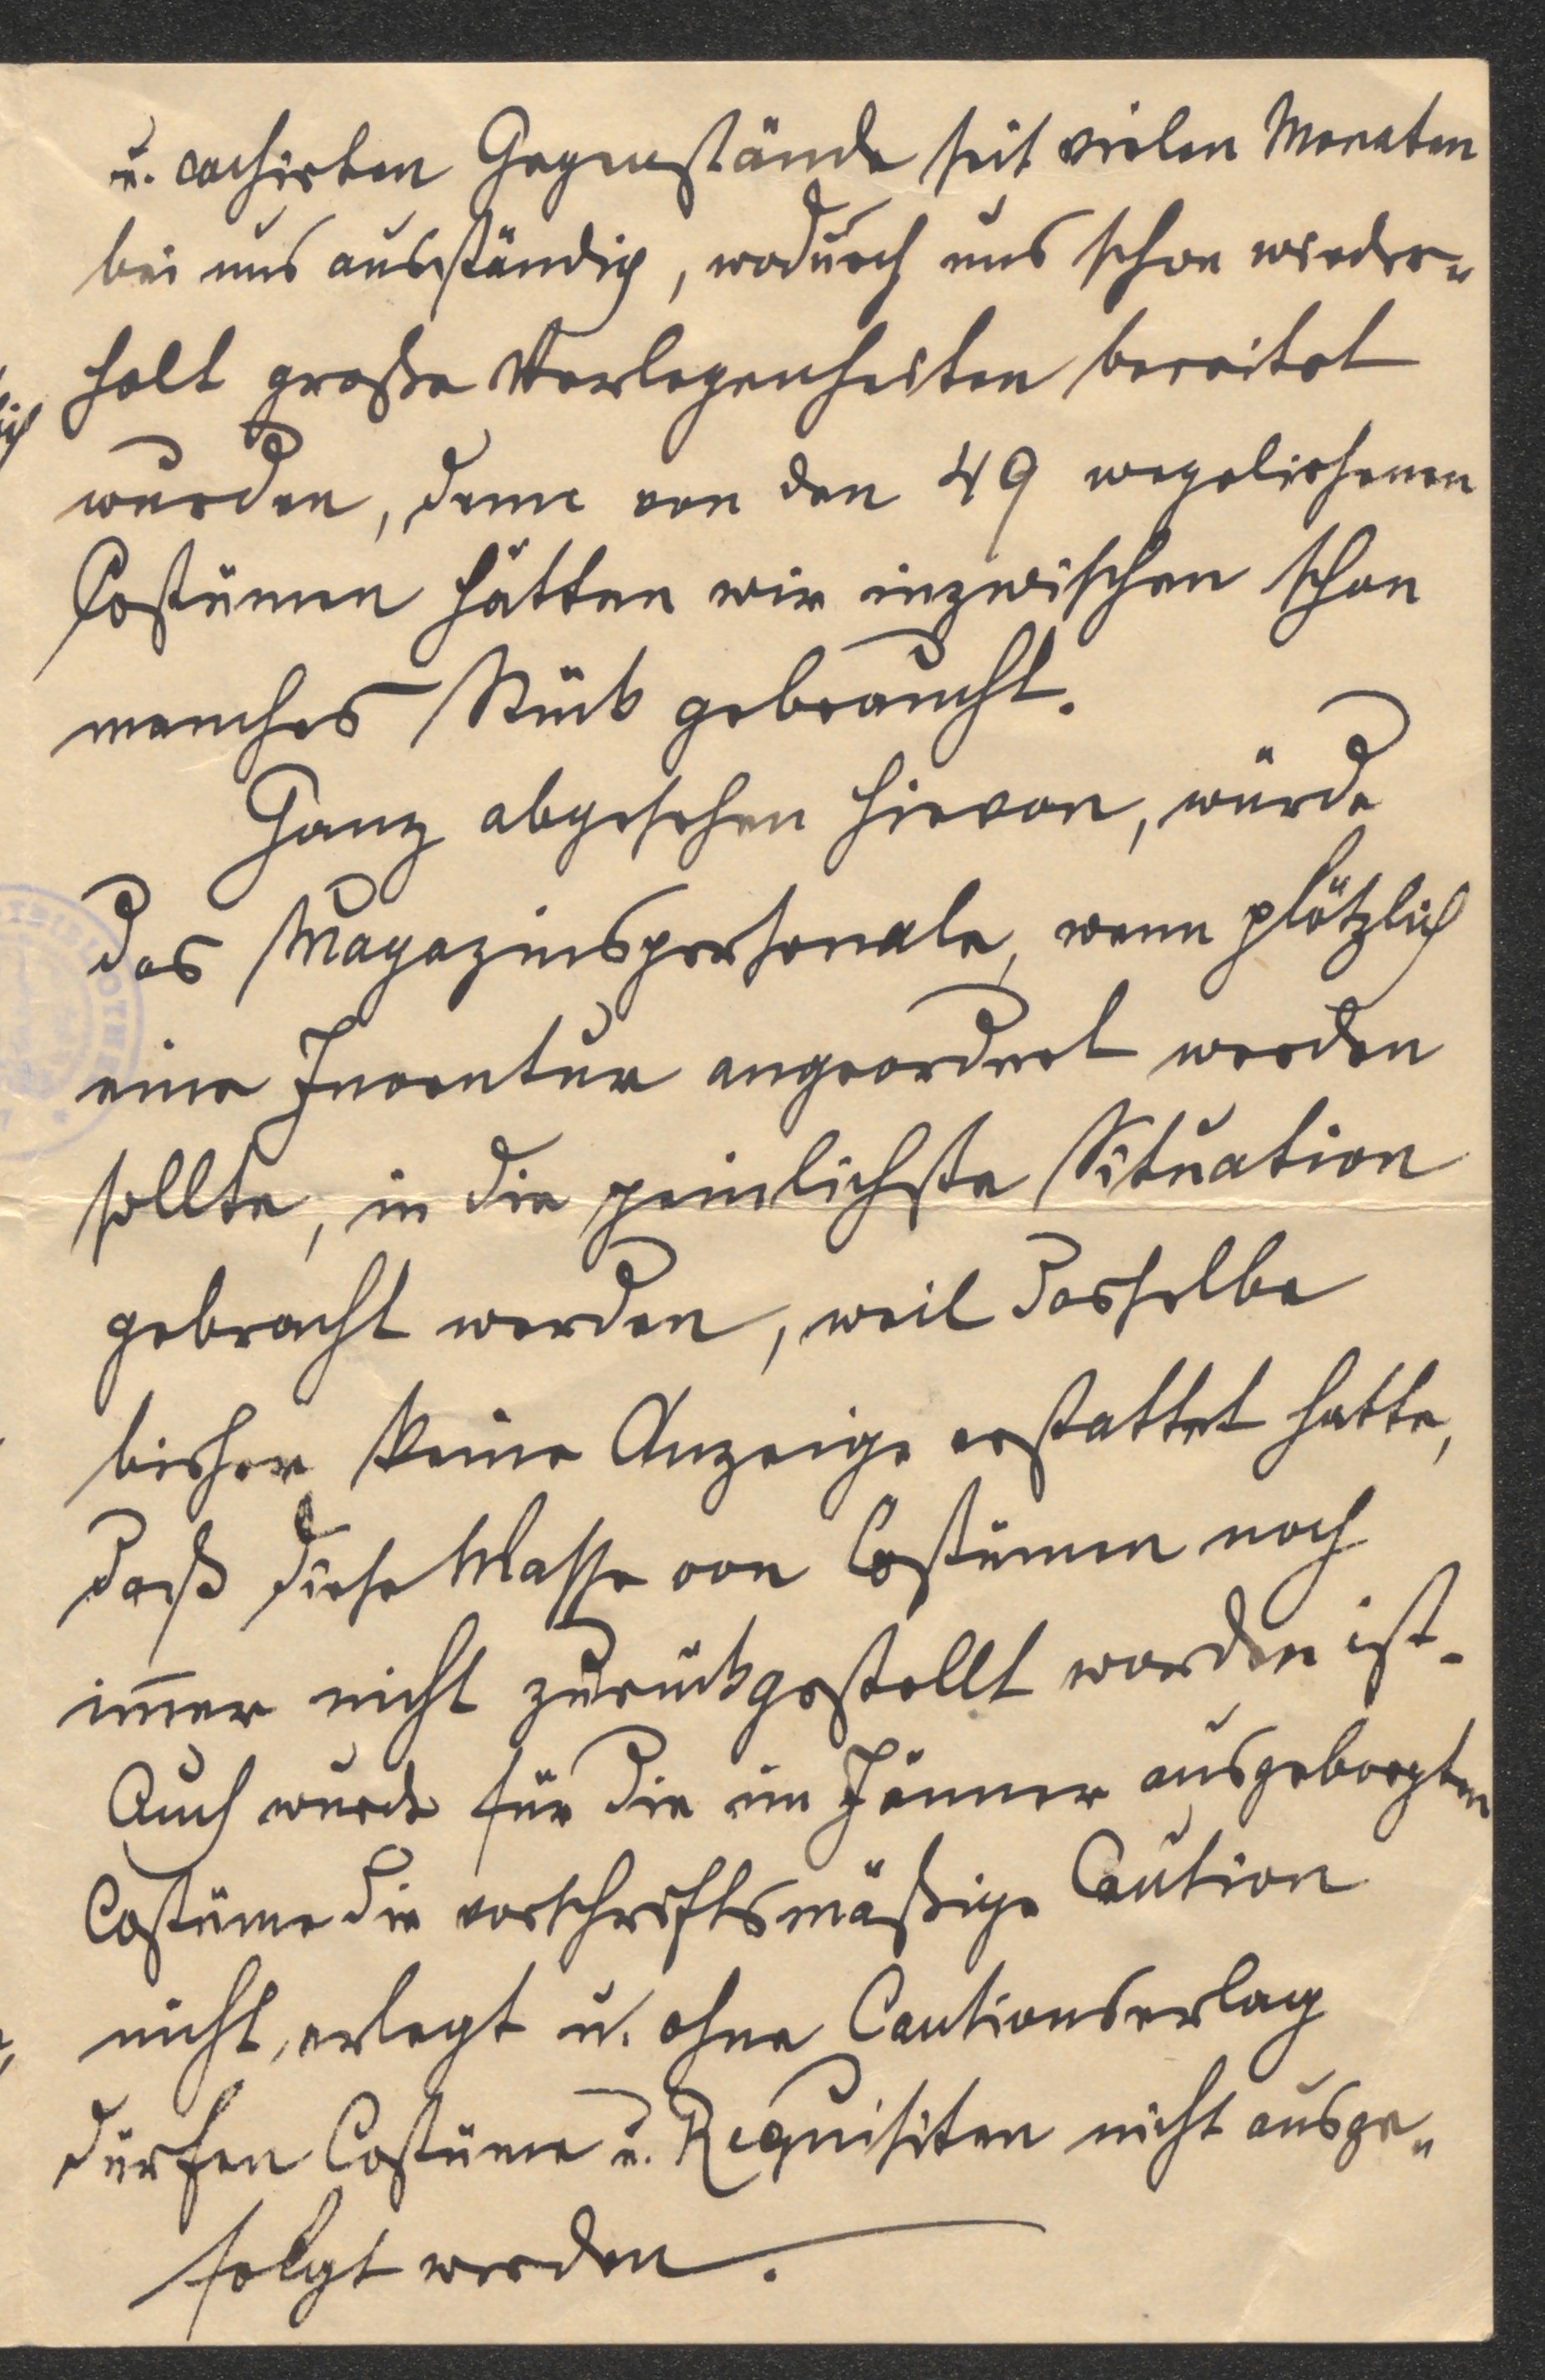 u. cachirten Gegenstände seit vielen Monaten
bei uns ausständig, wodurch uns schon wieder-
holt große Verlegenheiten bereitet
wurden, denn von den 49 wegeliehenen
Costümen hätten wir inzwischen schon
manches Stück gebraucht.
Ganz abgesehen hievon, würde
das Magazinspersonale, wenn plötzlich
eine Inventur angeordnet werden
sollte, in die peinlichste Situation
gebracht werden, weil dasselbe
bisher keine Anzeige erstattet hatte,
daß diese Masse von Costümen noch
im̅er nicht zurückgestellt worden ist.
Auch wurde für die im Jänner ausgeborgten
Costüme die vorschriftsmäßige Caution
nicht erlegt u. ohne Cautionserlag
dürfen Costüme u. Requisiten nicht ausge-
folgt werden.